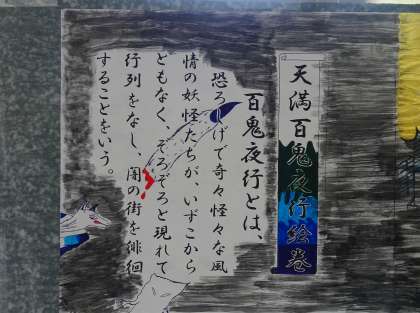 天満百鬼夜行絵巻
百鬼夜行とは、
恐ろしげで奇々怪々な風
情の妖怪たちが、いずこから
ともなく、ぞろぞろと現れて
行列をなし、闇の街を徘徊
することをいう。